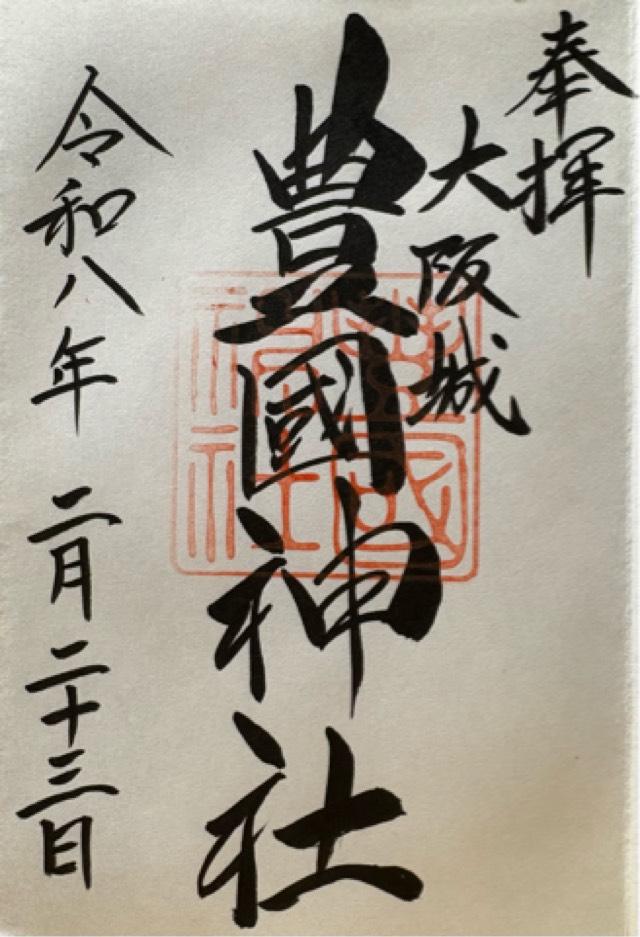 奉拝
大阪城
豊國神社
令和八年 二月二十三日
豊國神社